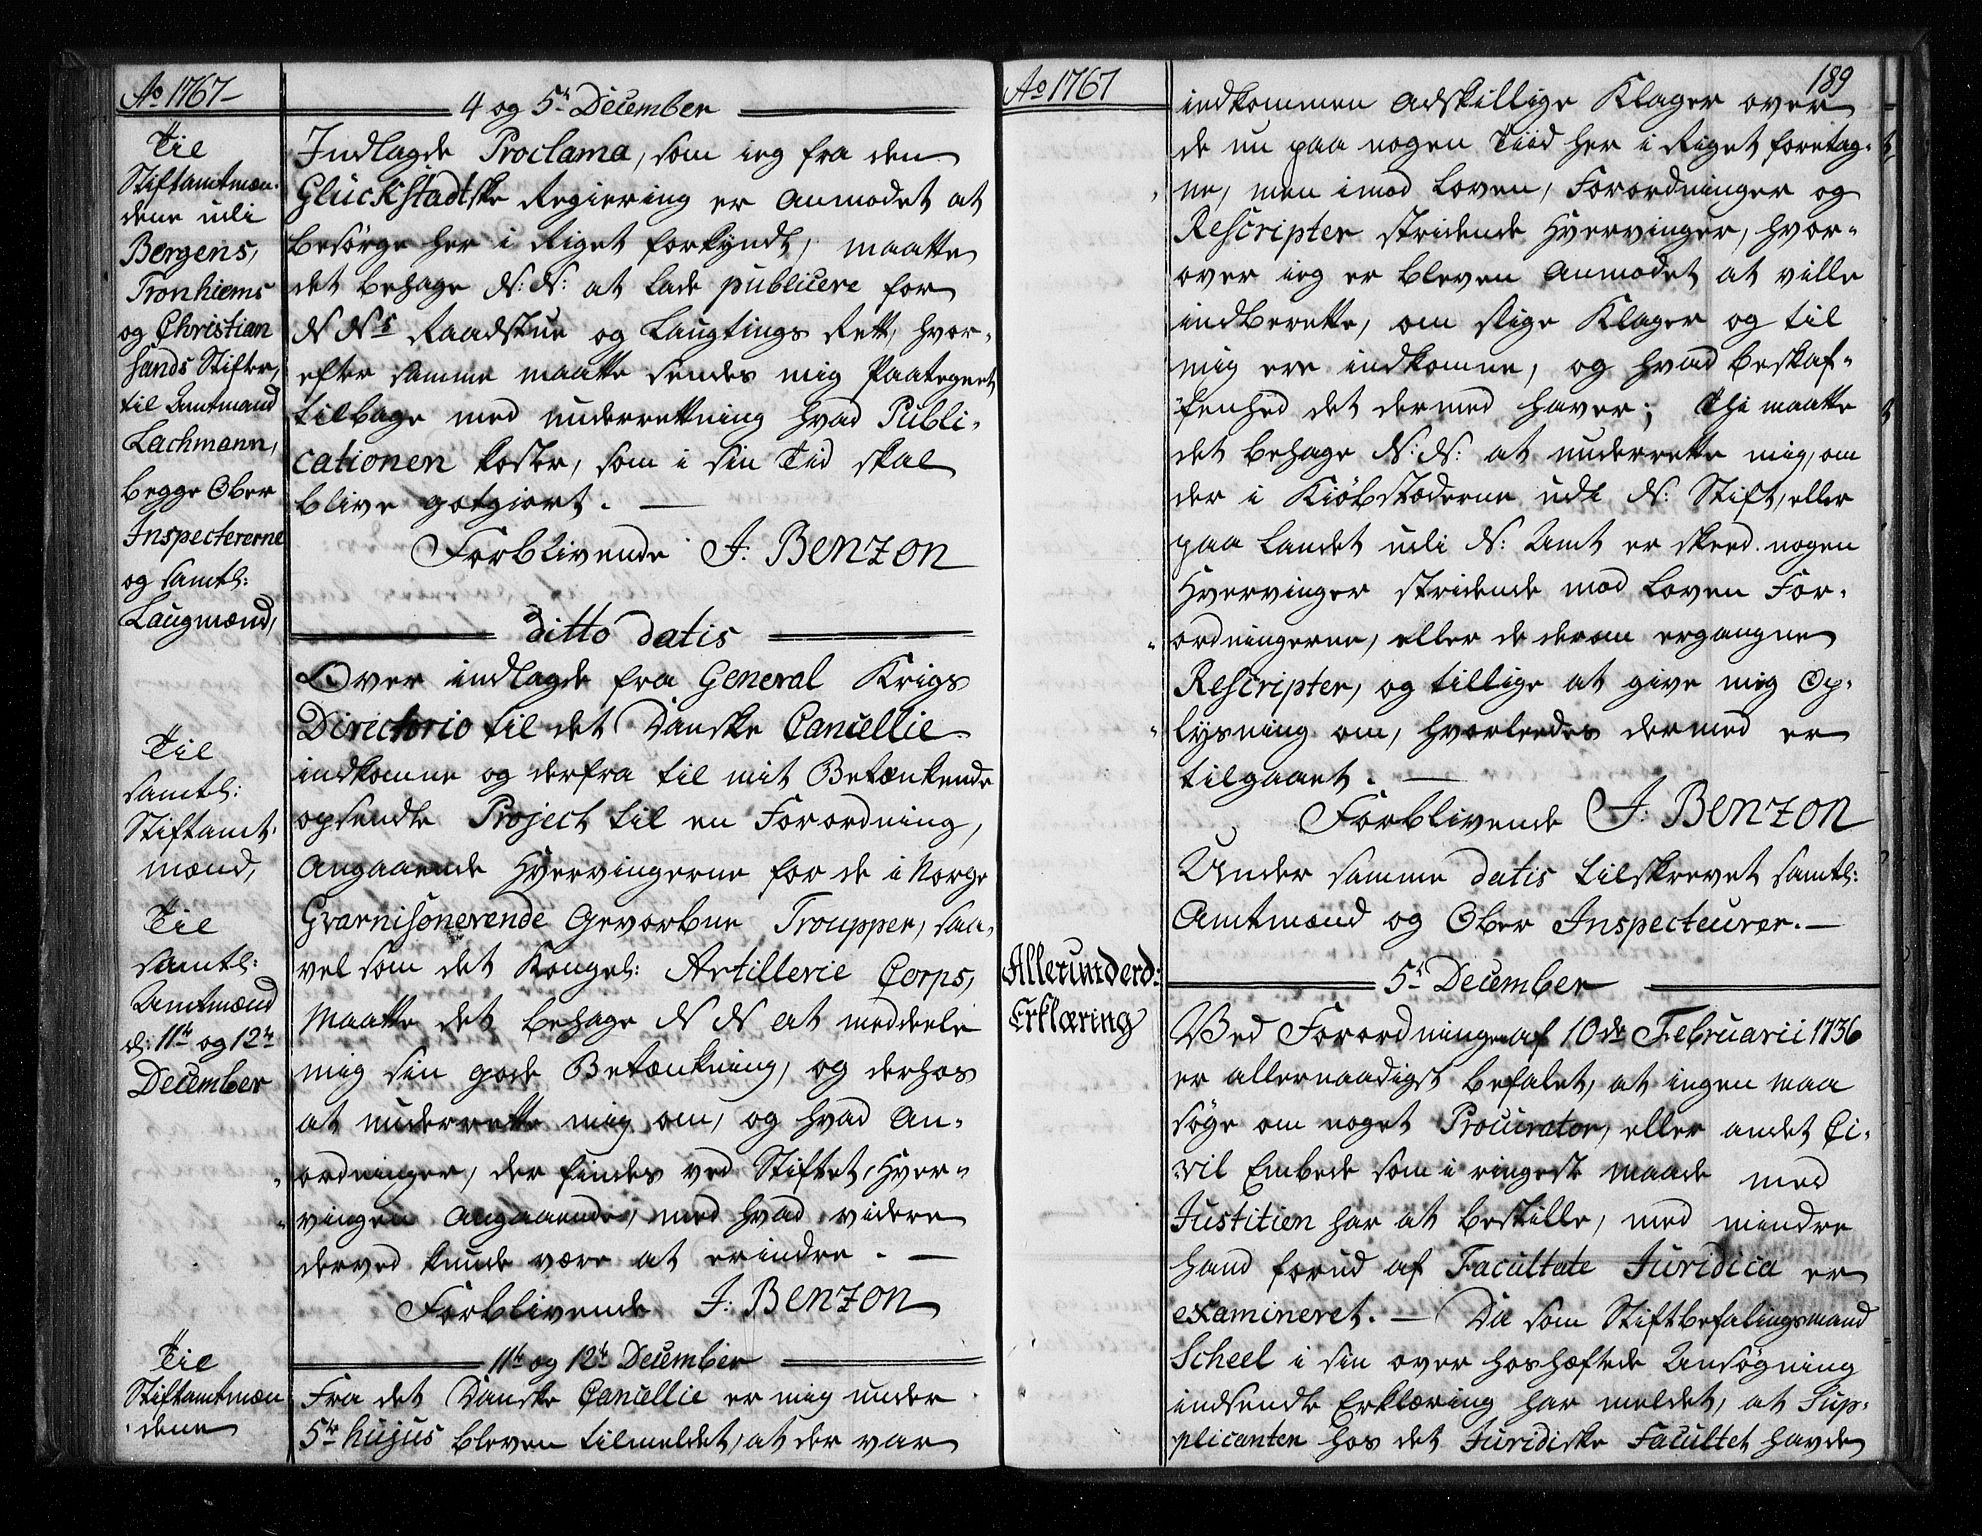 Ao 1767
4 og 5te December
Til
Stiftamtmæn-
dene udi
Bergens,
Tronhiems
og Christian
sands Stifter,
til Amtmand
Lachmann,
begge Ober
Inspecterne
og samtl:
Laugmænd,
Indlagde Proclama, som ieg fra den
Glückstadtske Regiering er anmodet at
besørge her i Riget forkyndt, maatte
det behage N: N: at lade publicere for
N Ns Raadstue og Laugtings Rett, hvor-
efter samme maatte sendes mig Paategnet
tilbage med underrettning hvad Publi-
cationen koster, som i sin Tid skal
blive gotgiort. —
Forblivende J: Benzon
ditto datis
Til
samtl:
Stiftamt-
mænd,
Til
samtl:
Amtmænd
d: 11te og 12te
December
Over indlagde fra General Krigs
Directorio til det Danske Cancellie
indkomne og derfra til mit Betænkende
opsendte Project til en Forordning,
angaaende Hvervingerne for de i Norge
Gvarnisonerende Gevorbne Troupper, saa-
vel som det Kongel: Artillerie Corps,
maatte det behage N N at meddeele
mig sin gode Betænkning, og derhos
at underrette mig om, og hvad An-
ordninger, der findes ved Stiftet, Hver-
vingen angaaende, med hvad videre
derved kunde være at erindre. —
Forblivende J: Benzon
11te og 12te December
Til
Stiftamtmæn
dene
Fra det Danske Cancellie er mig under
5te hujus bleven tilmeldet, at der var
Ao 1767
189
indkommen adskillige Klager over
de nu paa nogen Tiid her i Riget foretag-
ne, men imod Loven, Forordninger og
Rescripter stridende Hvervinger, hvor-
over ieg er bleven anmodet at ville
indberette, om slige Klager og til
mig ere indkomne, og hvad beskaf-
fenhed det dermed haver; Thi maatte
det behage N: N: at underrette mig, om
der i Kiøbstæderne udi N: Stift, eller
paa Landet udi N: Amt er skeed nogen
Hvervinger stridende mod Loven For-
ordningerne, eller de derom ergangne
Rescripter, og tillige at give mig Op-
lysning om, hvorleedes dermed er
tilgaaet. —
Forblivende J: Benzon
Under samme datis tilskrevet samtl:
Amtmænd og Ober Inspecteurer. —
5te December
Allerunderd:
Erklæring
Ved Forordningen af 10de Februarii 1736
er allernaadigst befalet, at ingen maa
søge om noget Procurator, eller andet Ci-
vil Embede som i ringeste maade med
Justitien har at bestille, med mindre
hand forud af Facultate Juridica er
examineret. — Da som Stiftbefalingsmand
Scheel i sin over hoshæftede Ansøgning
indsendte Erklæring har meldet, at Sup-
plicanten hos det Juridiske Facultet havde